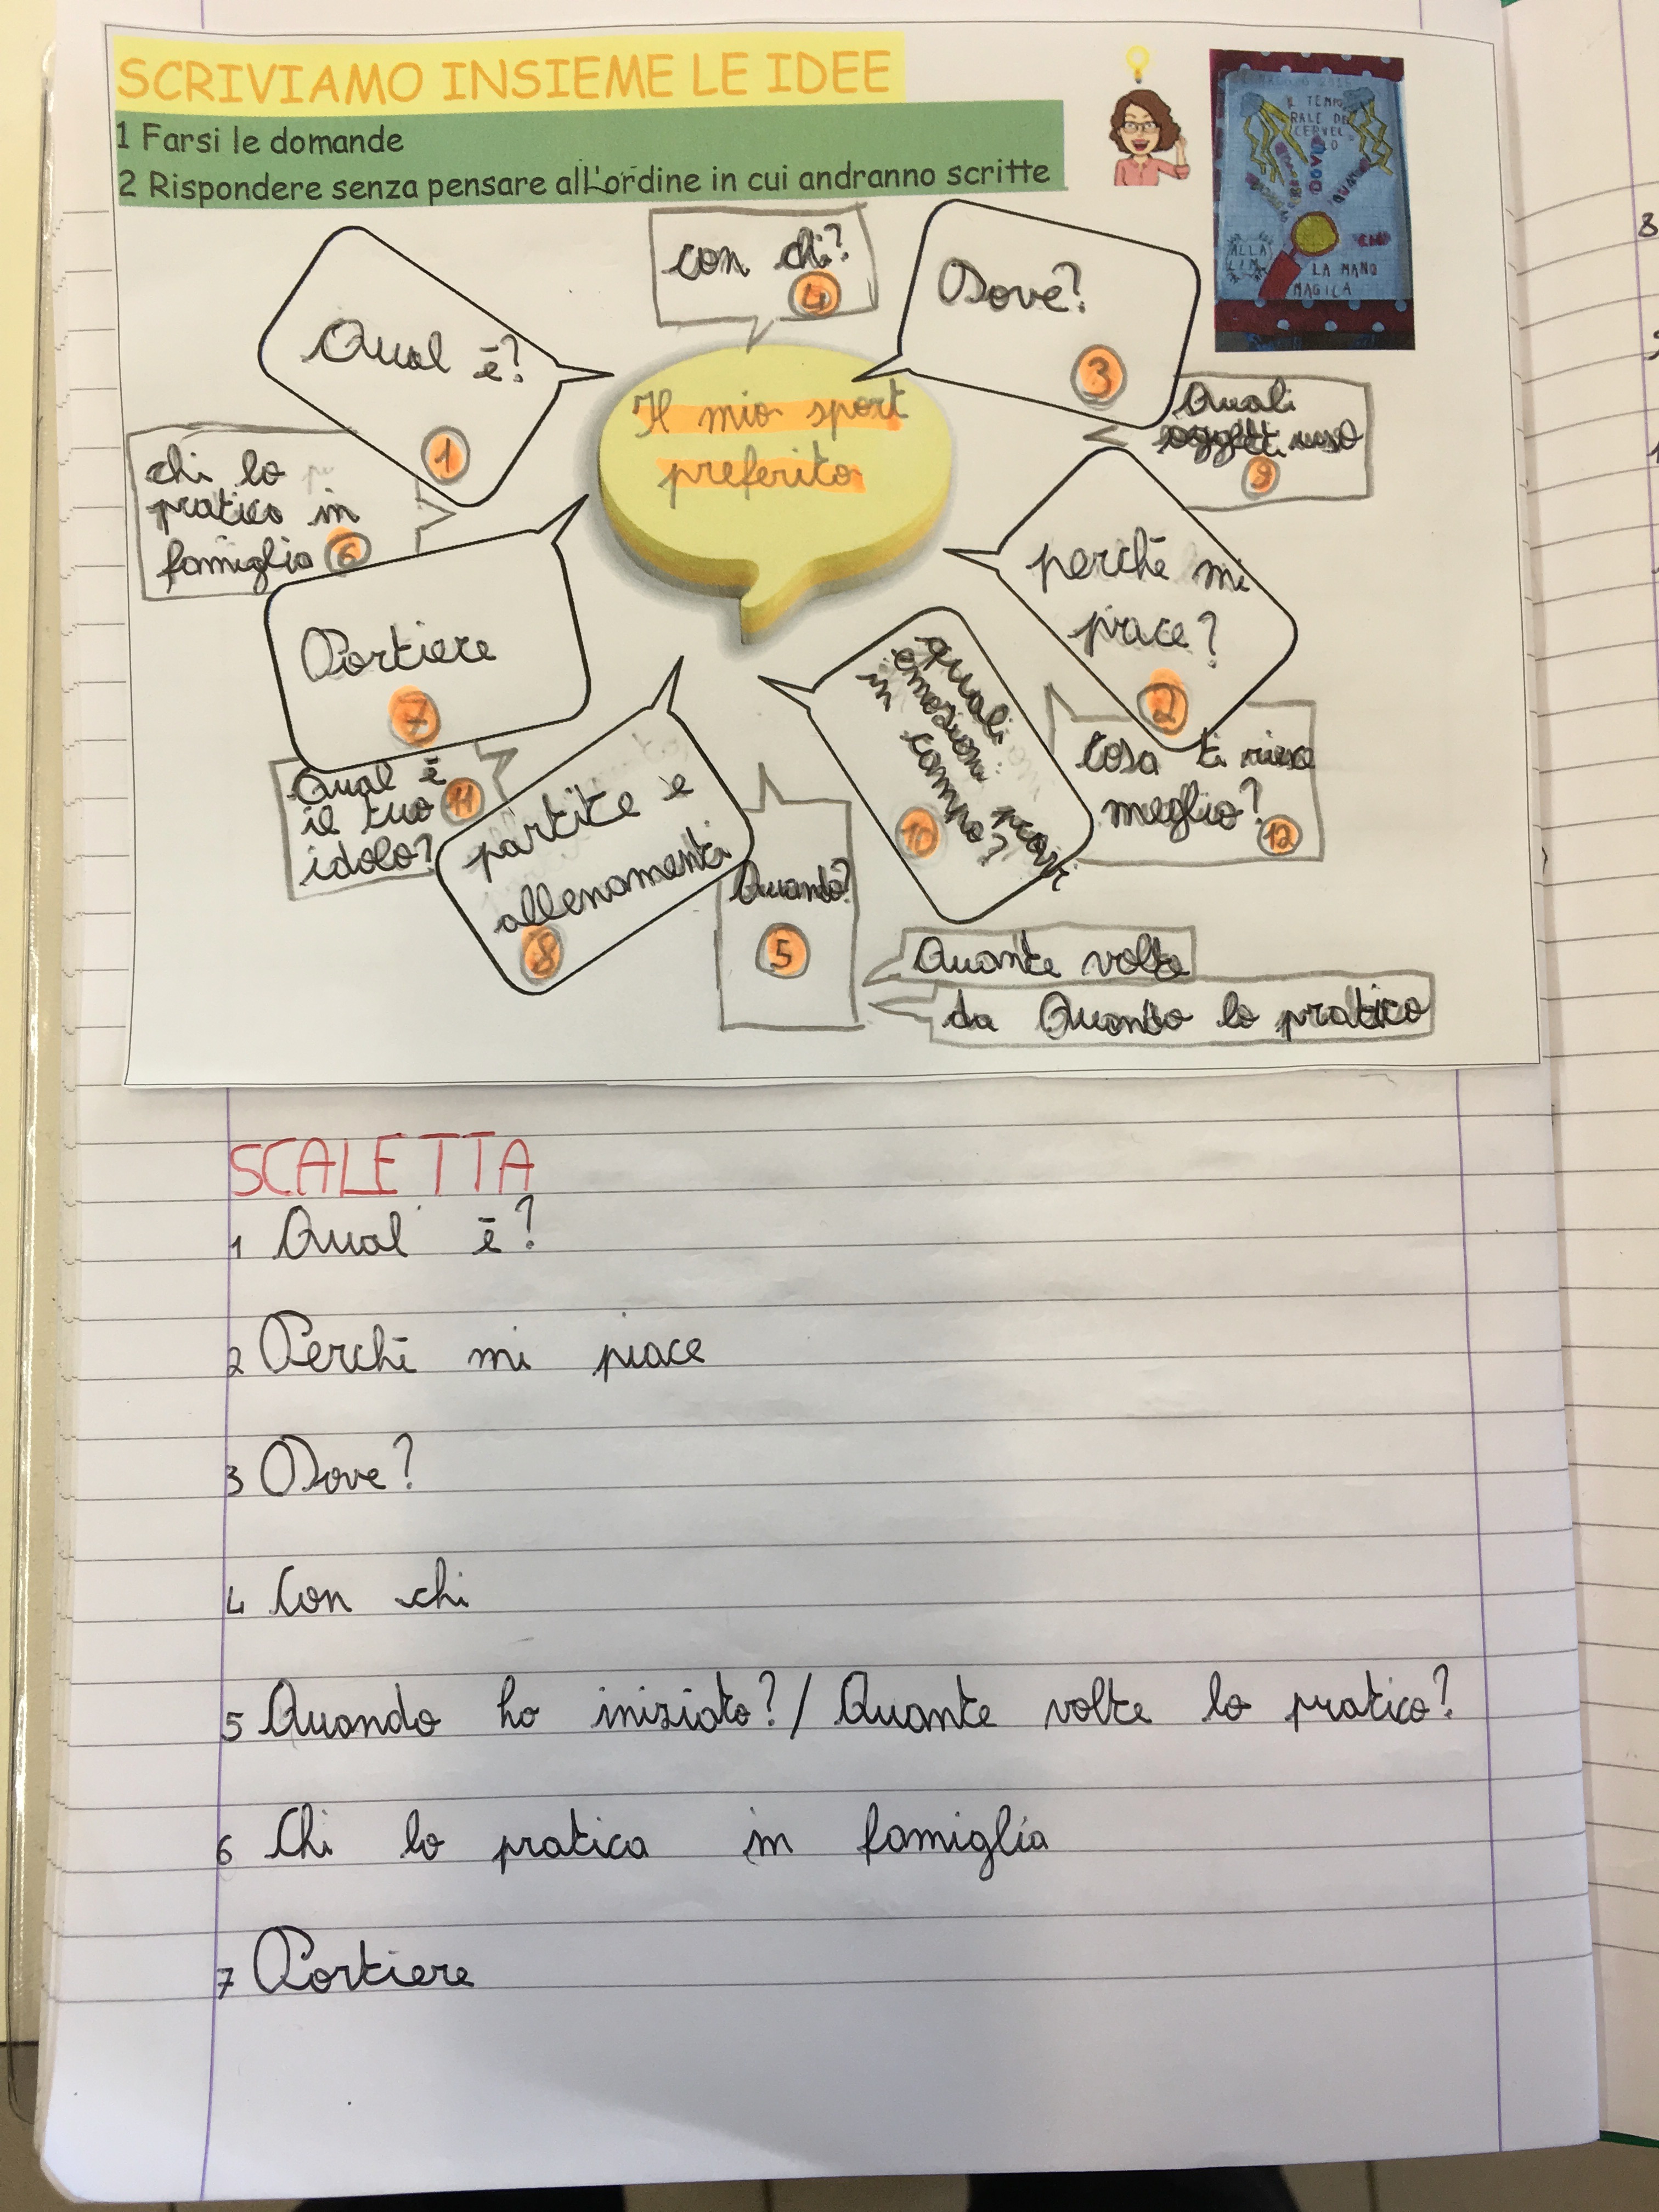 SCRIVIAMO INSIEME LE IDEE
1 Farsi le domande
2 Rispondere senza pensare all'ordine in cui andranno scritte
IL TEMPO
RALE DEL
CERVEL
O
DOVE
CHI
ALLA
LA MANO
MAGICA
Qual ē?
1
con chi?
4
Dove?
3
Il mio sport
preferito
Quali
oggetti uso
9
chi lo
pratica in
famiglia 6
perchē mi
piace?
2
Portiere
7
quali
emozioni provi
in campo?
10
Cosa ti riesce
meglio?
12
Qual ē
il tuo 11
idolo?
partite e
allenamenti
8
Quando?
5
Quante volte
da Quando lo pratico
SCALETTA
1 Qual ē?
2 Perchē mi piace
3 Dove?
4 Con chi
5 Quando ho iniziato? / Quante volte lo pratico?
6 Chi lo pratica in famiglia
7 Portiere
8